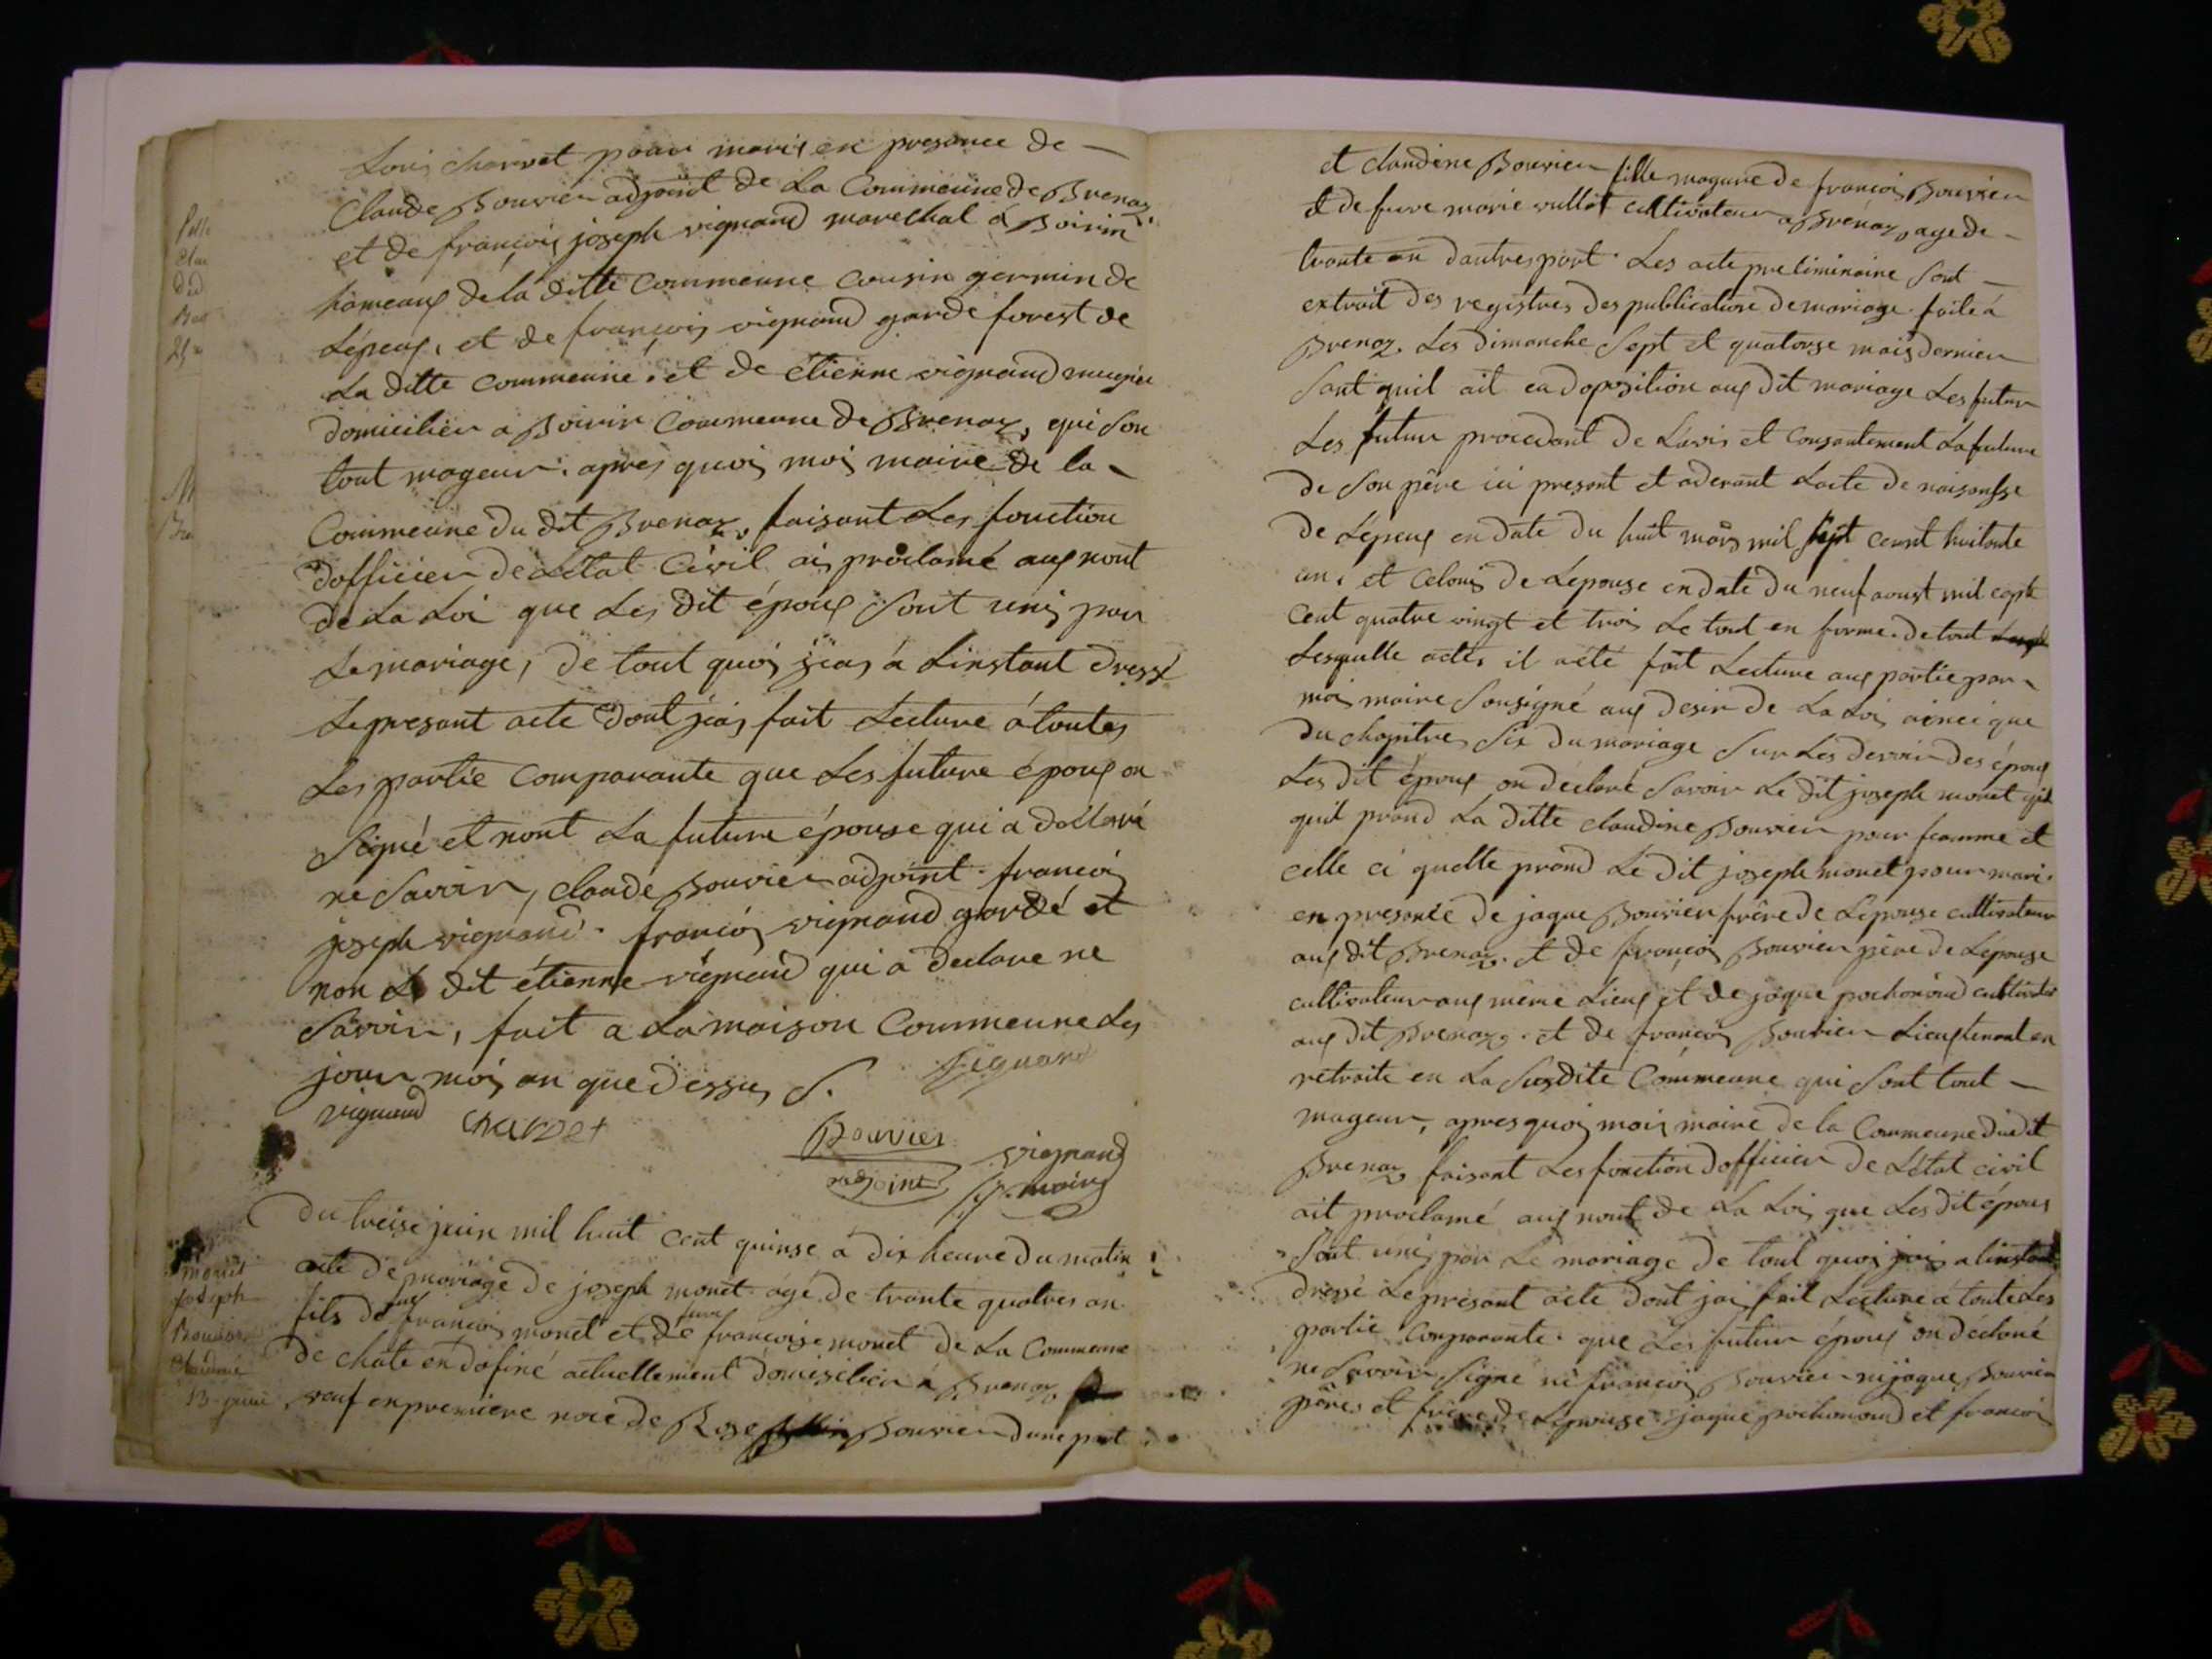 Louis charvet pour maris en presance de
Claude Bouvier adjoint de La Commeune de Brenaz
et de françois joseph vignand marechal a Boirin
hameaux de la ditte Commeune Cousin germin de
Lépeux, et de françois vignand garde forest de
La ditte Commeune. et de étienne vignand
domicilier a Boirin Commeune de Brenaz, qui son
tout mageur. apres quois mois maire de la
Commeune du dit Brenaz, faisant Les fonction
dofficier de Létat Civil ais proclamé aux nont
de La Loi que Les dit époux sont unis par
Le mariage, de tout quois jeais a Linstant dressé
Le presant acte dont jeais fait Lecture a toutes
Les partie Comparante que Les future époux on
signé et nont La future épouse qui a déclaré
ne savoir, claude Bouvier adjoint. françois
joseph vignand. françois vignand garde et
non Le dit étienne vignand qui a declare ne
savoir, fait a La maison Commeune Les
jour mois an que dessus
vignand
charvet
vignand
Bouvier
adjoint
vignand
maire
monet
joseph
Bouvier
Claudine
13 juin
Du treise juin mil huit cent quinse a dix heure du matin
acte de mariage de joseph monet agé de trante quatres an
fils de feu françois monet et de feue francoise monet de La Commeune
de chate en dofiné actuellement domicilier a Brenaz
veuf en premiere noce de Rose Bouvier dune part
et claudine Bouvier fille mageure de françois Bouvier
et de fueve marie vullot cultivateur a Brénaz, age de
trante an dautres part. Les acte preliminaire sont
extrait des registres des publication de mariage faite á
Brenaz. Les dimanche sept et quatorse mais dernier
sant quil ait eu doposition aux dit mariage Les futur
Les futur procedant de Lavis et Consantement La future
de son père ici present et aderant Lacte de naisansse
de Lépeux en date du huit mars mil sept cent huitante
un. et celouis de Lepouse en date du neuf aoust mil sept
cent quatre vingt et trois Le tout en forme. de tout
Lesquelle actes il aété fait Lecture aux partie par
moi maire sousigné aux desir de La Loi ainci que
du chapitre six du mariage sur Les devoir des époux
Les dit époux on déclaré savoir Le dit joseph monet
quil prand La ditte claudine Bouvier pour feamme et
celle ci quelle prand Le dit joseph monet pour mari.
en presance de jaque Bouvier frère de Lepouse cultivateur
aux dit Brenaz. et de françois Bouvier père de Lépouse
cultivateur aux même Lieux et de jaque pochonoud cultivater
aux dit Brenaz. et de françois Bouvier Lieuxtenant en
retraite en La susdite Commeune qui sont tout
mageur, apres quois mois maire de la Commeune dudit
Brenaz faisant Les fonction dofficier de Létat civil
ait proclamé aux nont de La Loi que Les dit époux
sont unis par Le mariage de tout quois jais a linstant
dressé Le présant acte dont jai fait Lecture á toute Les
partie Comparante. que Les futur époux on déclaré
ne savoir signé ni françois Bouvier ni jaque Bouvier
père et frère de Lepouse. jaque pochonoud et françois